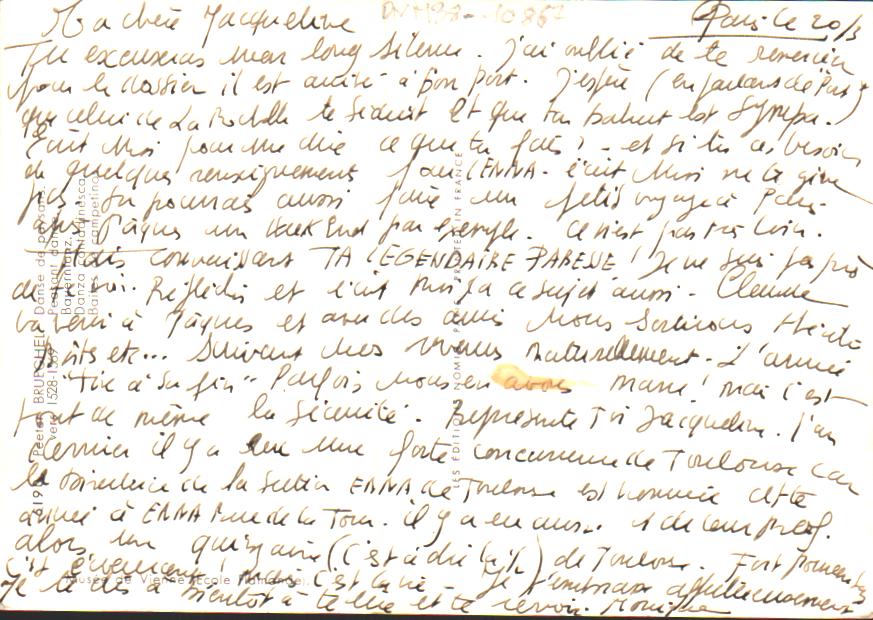 Ma chère Jacqueline
Paris le 20/3
Tu excuseras mon long silence. j'ai oublié de te remercier
pour le dossier il est arrivé à bon port. j'espère (en parlant de "Port")
que celui de La Rochelle te séduit Et que ton bahut est sympa.
Ecrit moi pour me dire ce que tu fais? - et si tu as besoin
de quelques renseignements pour l'ENNA. écrit moi ne te gêne
pas. Tu pourrais aussi faire un petit voyage à Paris
pour Pâques un WeekEnd par exemple. Ce n'est pas très loin.
Mais connaissant TA LEGENDAIRE PARESSE! Je ne suis pas près
de te voir. Réfléchis et écrit moi à ce sujet aussi. Claude
va venir à Pâques et avec des amis Nous Sortirons
etc... Suivant mes revenus naturellement. L'année
"tire à sa fin" Parfois nous en avons marre! mais c'est
tout de même la sécurité. Représente toi Jacqueline. l'an
dernier il y a eu une forte concurrence de Toulouse car
la directrice de la section ENNA de Toulouse est nommée cette
année à ENNA Rue de la Tour. il y a en aussi 1 de leur prof.
alors une quinzaine (c'est à dire) de Toulouse. Fort
c'est mais c'est la vie Je t'embrasse affectueusement
Je te dis à bientôt à te lire et te revoir. Monique
6195 Peeter BRUEGHEL Danse de paysans.
vers 1528-1569 Peasant dance.
Bauerntanz.
Danza contadinesca.
Bailes de campesinos.
LES ÉDITIONS NOMIS, PARIS PRINTED IN FRANCE
Musée de Vienne (Ecole Flamande).